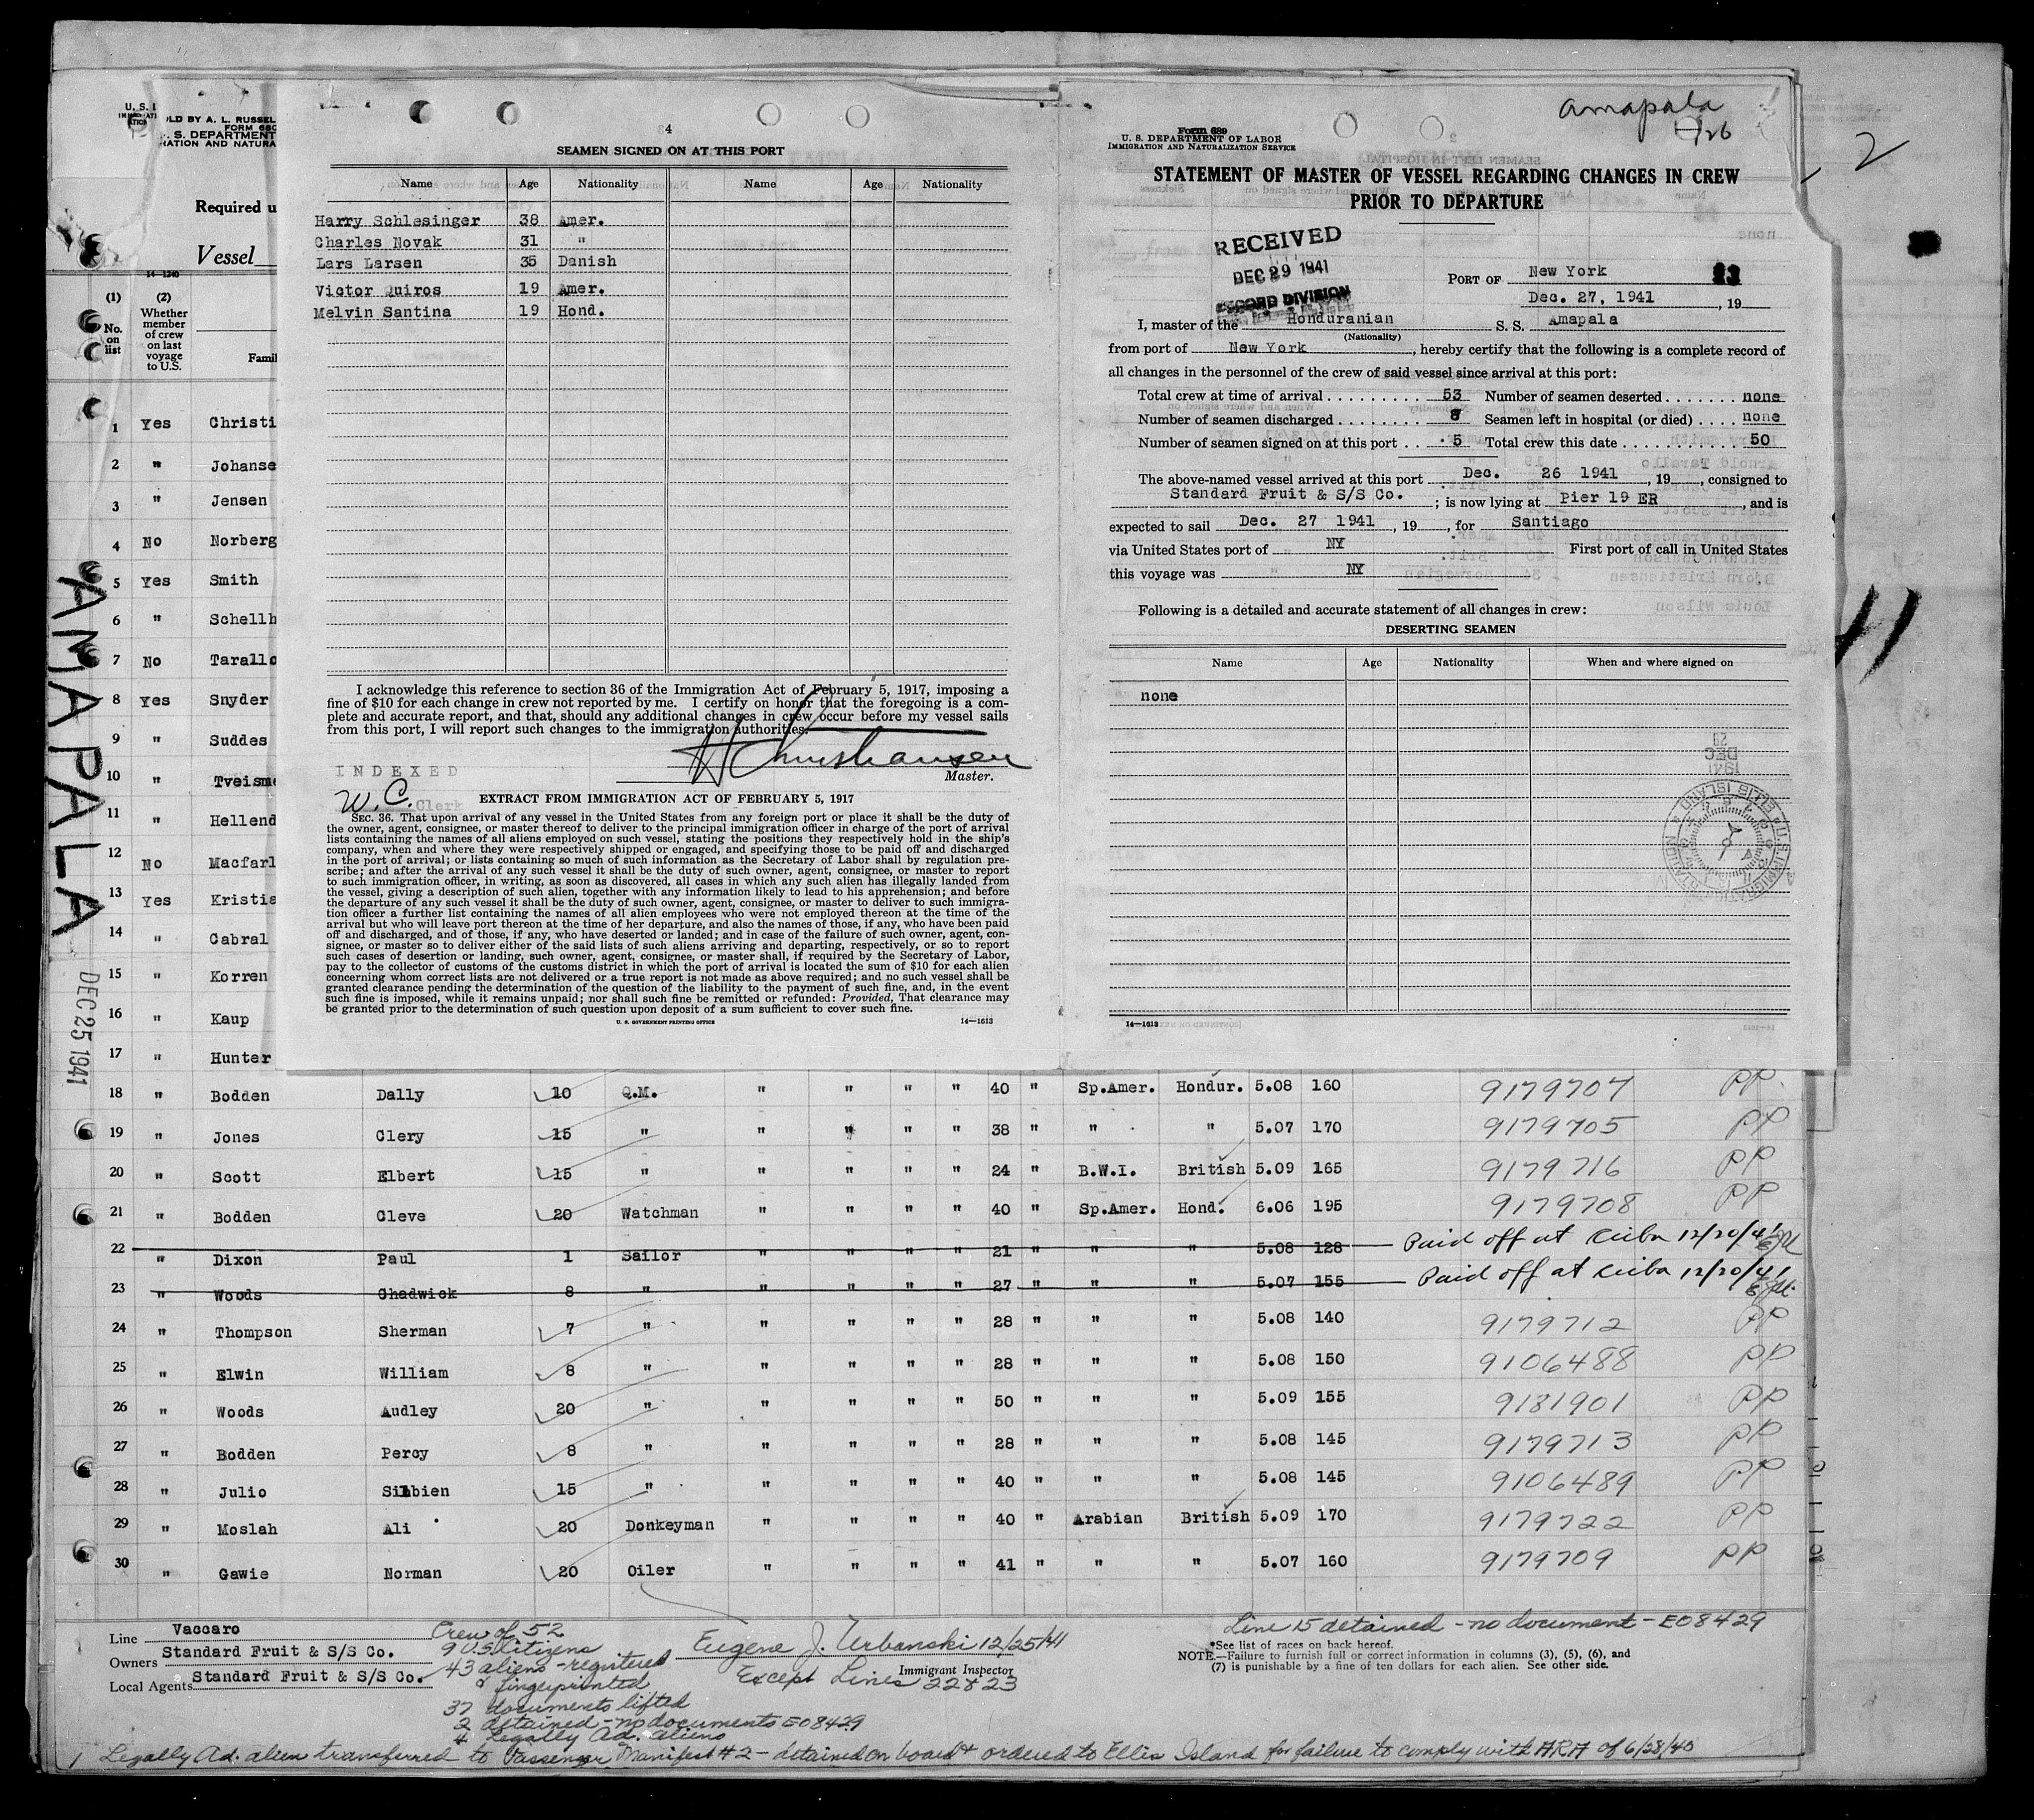 amapala
2
4
SEAMEN SIGNED ON AT THIS PORT
Name Age Nationality Name Age Nationality
Harry Schlesinger 38 Amer.
Charles Novak 31 "
Lars Larsen 35 Danish
Victor Quiros 19 Amer.
Melvin Santina 19 Hond.
I acknowledge this reference to section 36 of the Immigration Act of February 5, 1917, imposing a
fine of $10 for each change in crew not reported by me. I certify on honor that the foregoing is a com-
plete and accurate report, and that, should any additional changes in crew occur before my vessel sails
from this port, I will report such changes to the immigration authorities.
H Christiansen
Master.
INDEXED
W. C. Clerk
EXTRACT FROM IMMIGRATION ACT OF FEBRUARY 5, 1917
SEC. 36. That upon arrival of any vessel in the United States from any foreign port or place it shall be the duty of
the owner, agent, consignee, or master thereof to deliver to the principal immigration officer in charge of the port of arrival
lists containing the names of all aliens employed on such vessel, stating the positions they respectively hold in the ship's
company, when and where they were respectively shipped or engaged, and specifying those to be paid off and discharged
in the port of arrival; or lists containing so much of such information as the Secretary of Labor shall by regulation pre-
scribe; and after the arrival of any such vessel it shall be the duty of such owner, agent, consignee, or master to report
to such immigration officer, in writing, as soon as discovered, all cases in which any such alien has illegally landed from
the vessel, giving a description of such alien, together with any information likely to lead to his apprehension; and before
the departure of any such vessel it shall be the duty of such owner, agent, consignee, or master to deliver to such immigra-
tion officer a further list containing the names of all alien employees who were not employed thereon at the time of the
arrival but who will leave port thereon at the time of her departure, and also the names of those, if any, who have been paid
off and discharged, and of those, if any, who have deserted or landed; and in case of the failure of such owner, agent, con-
signee, or master so to deliver either of the said lists of such aliens arriving and departing, respectively, or so to report
such cases of desertion or landing, such owner, agent, consignee, or master shall, if required by the Secretary of Labor,
pay to the collector of customs of the customs district in which the port of arrival is located the sum of $10 for each alien
concerning whom correct lists are not delivered or a true report is not made as above required; and no such vessel shall be
granted clearance pending the determination of the question of the liability to the payment of such fine, and, in the event
such fine is imposed, while it remains unpaid; nor shall such fine be remitted or refunded: Provided, That clearance may
be granted prior to the determination of such question upon deposit of a sum sufficient to cover such fine.
U. S. GOVERNMENT PRINTING OFFICE 14—1613
Form 689
U. S. DEPARTMENT OF LABOR
IMMIGRATION AND NATURALIZATION SERVICE
STATEMENT OF MASTER OF VESSEL REGARDING CHANGES IN CREW
PRIOR TO DEPARTURE
RECEIVED
DEC 29 1941
RECORD DIVISION
PORT OF New York
Dec. 27, 1941, 19
I, master of the Honduranian S. S. Amapala
(Nationality)
from port of New York, hereby certify that the following is a complete record of
all changes in the personnel of the crew of said vessel since arrival at this port:
Total crew at time of arrival 53 Number of seamen deserted none
Number of seamen discharged 8 Seamen left in hospital (or died) none
Number of seamen signed on at this port 5 Total crew this date 50
The above-named vessel arrived at this port Dec. 26 1941, 19, consigned to
Standard Fruit & S/S Co.; is now lying at Pier 19 ER, and is
expected to sail Dec. 27 1941, 19, for Santiago
via United States port of NY First port of call in United States
this voyage was NY
Following is a detailed and accurate statement of all changes in crew:
DESERTING SEAMEN
Name Age Nationality When and where signed on
none
14—1613
U. S. DEPARTMENT
Required u
Vessel
14—1240
(1) (2)
No. on list
Whether member of crew on last voyage to U.S.
Famil
AMAPALA
DEC 25 1941
41
1 Yes Christi
2 " Johanse
3 " Jensen
4 No Norberg
5 Yes Smith
6 " Schellh
7 No Tarallo
8 Yes Snyder
9 " Suddes
10 " Tveisme
11 " Hellend
12 No Macfarl
13 Yes Kristia
14 " Cabral
15 " Korren
16 " Kaup
17 " Hunter
18 " Bodden Dally 10 Q.M. " " " " 40 " Sp.Amer. Hondur. 5.08 160 9179707 PP
19 " Jones Clery 15 " " " " " 38 " " " 5.07 170 9179705 PP
20 " Scott Elbert 15 " " " " " 24 " B.W.I. British 5.09 165 9179716 PP
21 " Bodden Cleve 20 Watchman " " " " 40 " Sp.Amer. Hond. 6.06 195 9179708 PP
22 " Dixon Paul 1 Sailor " " " " 21 " " " 5.08 128 Paid off at Cuba 12/20/41
23 " Woods Chadwick 8 " " " " " 27 " " " 5.07 155 Paid off at Cuba 12/20/41
24 " Thompson Sherman 7 " " " " " 28 " " " 5.08 140 9179712 PP
25 " Elwin William 8 " " " " " 28 " " " 5.08 150 9106488 PP
26 " Woods Audley 20 " " " " " 50 " " " 5.09 155 9181901 PP
27 " Bodden Percy 8 " " " " " 28 " " " 5.08 145 9179713 PP
28 " Julio Silbien 15 " " " " " 40 " " " 5.08 145 9106489 PP
29 " Moslah Ali 20 Donkeyman " " " " 40 " Arabian British 5.09 170 9179722 PP
30 " Gawie Norman 20 Oiler " " " " 41 " " " 5.07 160 9179709 PP
Line Vaccaro
Owners Standard Fruit & S/S Co.
Local Agents Standard Fruit & S/S Co.
Crew of 52
9 U.S. Citizens
43 aliens - registered
& fingerprinted
37 documents lifted
2 detained - no documents E08429
4 Legally Ad. aliens
Eugene J. Urbanski 12/25/41
Immigrant Inspector
Except Lines 22 & 23
Line 15 detained - no document - E08429
*See list of races on back hereof.
NOTE.—Failure to furnish full or correct information in columns (3), (5), (6), and
(7) is punishable by a fine of ten dollars for each alien. See other side.
1 Legally Ad. alien transferred to Passenger Manifest #2 - detained on board & ordered to Ellis Island for failure to comply with ARA of 6/28/40